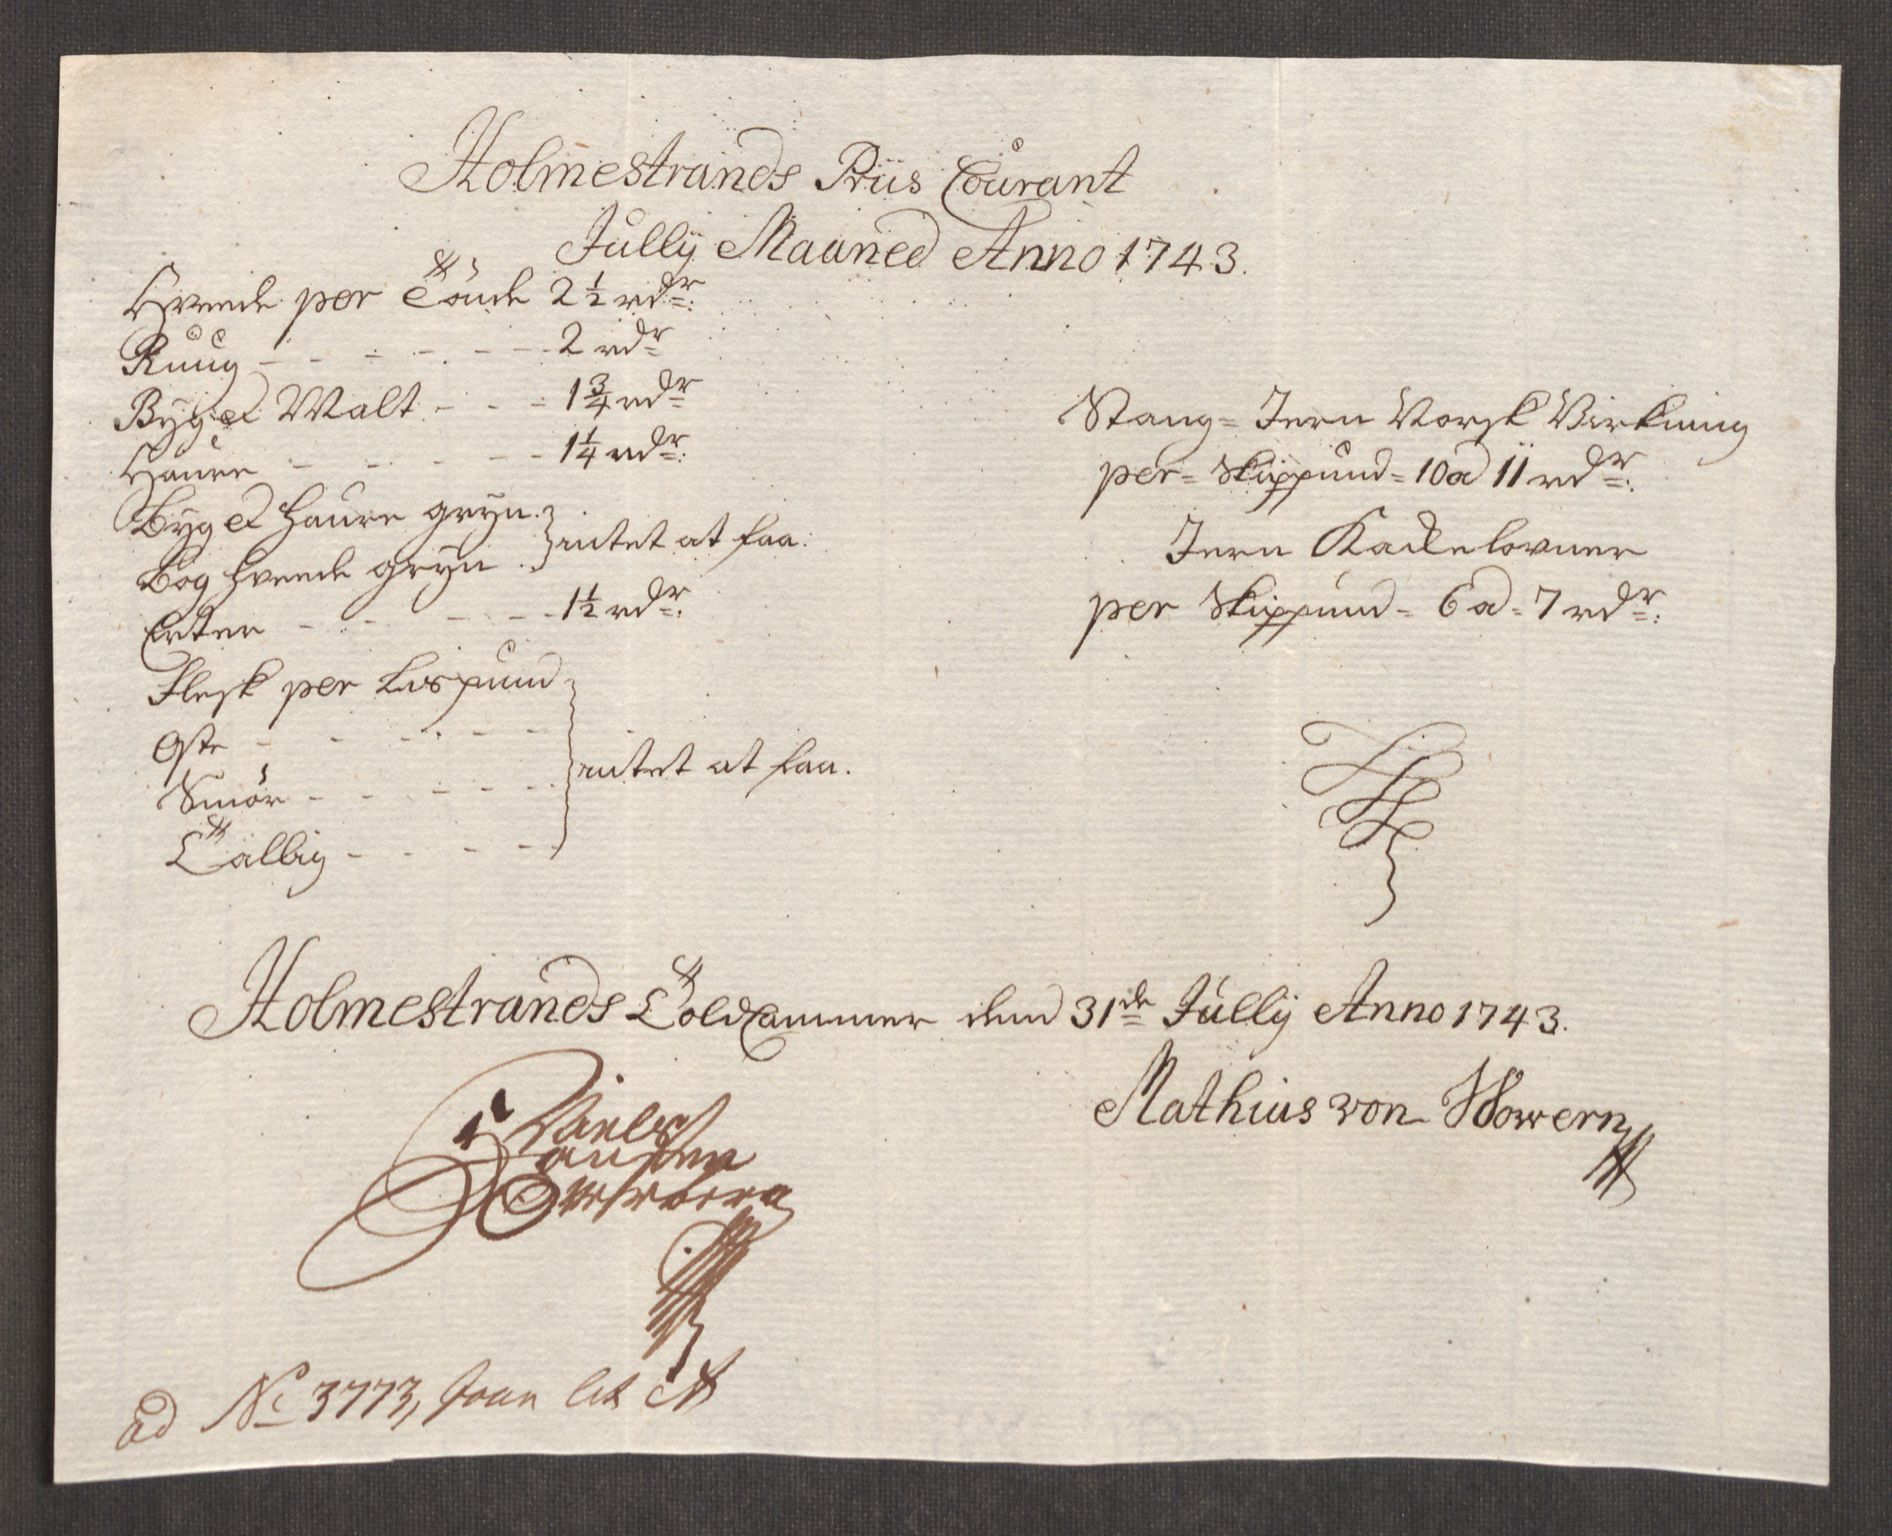 Holmestrands Priis Courant
Jullij Maaned Anno 1743.
Hveede per Tönde 2 1/2 rdr:
Ruug - - - - - - 2 rdr
Byg et Malt - - - 1 3/4 rdr
Haure - - - - - 1 1/4 rdr:
Byg et Haure gryn
Bog Hveede gryn intet at faa:
Erter - - - - - 1 1/2 rdr:
Flesk per Lispund
Oste - - - - - -
Smör - - - - - intet at faa.
Tallig - - - -
Stang = Jern Norsk Virkning
per = Skippund = 10 a 11 rdr:
Jern Kackelovner
per Skippund = 6 a = 7 rdr:
Holmestrands Told Cammer dend 31de Jullij Anno 1743.
Niels
Mathius von Howern
ad No 3773, Joan lit A